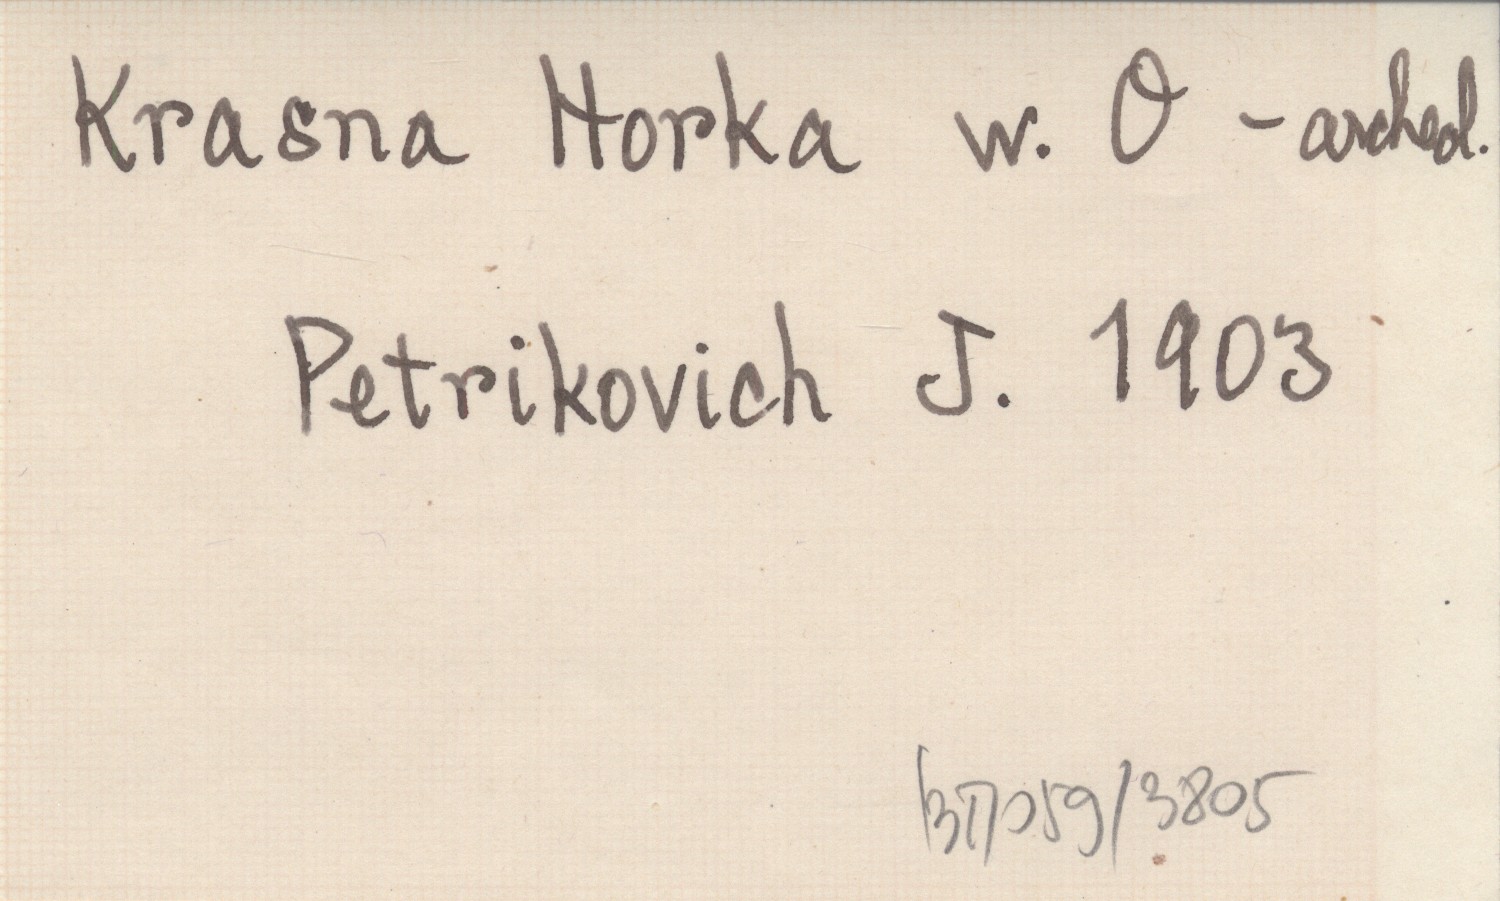 Krasna Horka w. O - archeol.
Petrikovich J. 1903
/3805